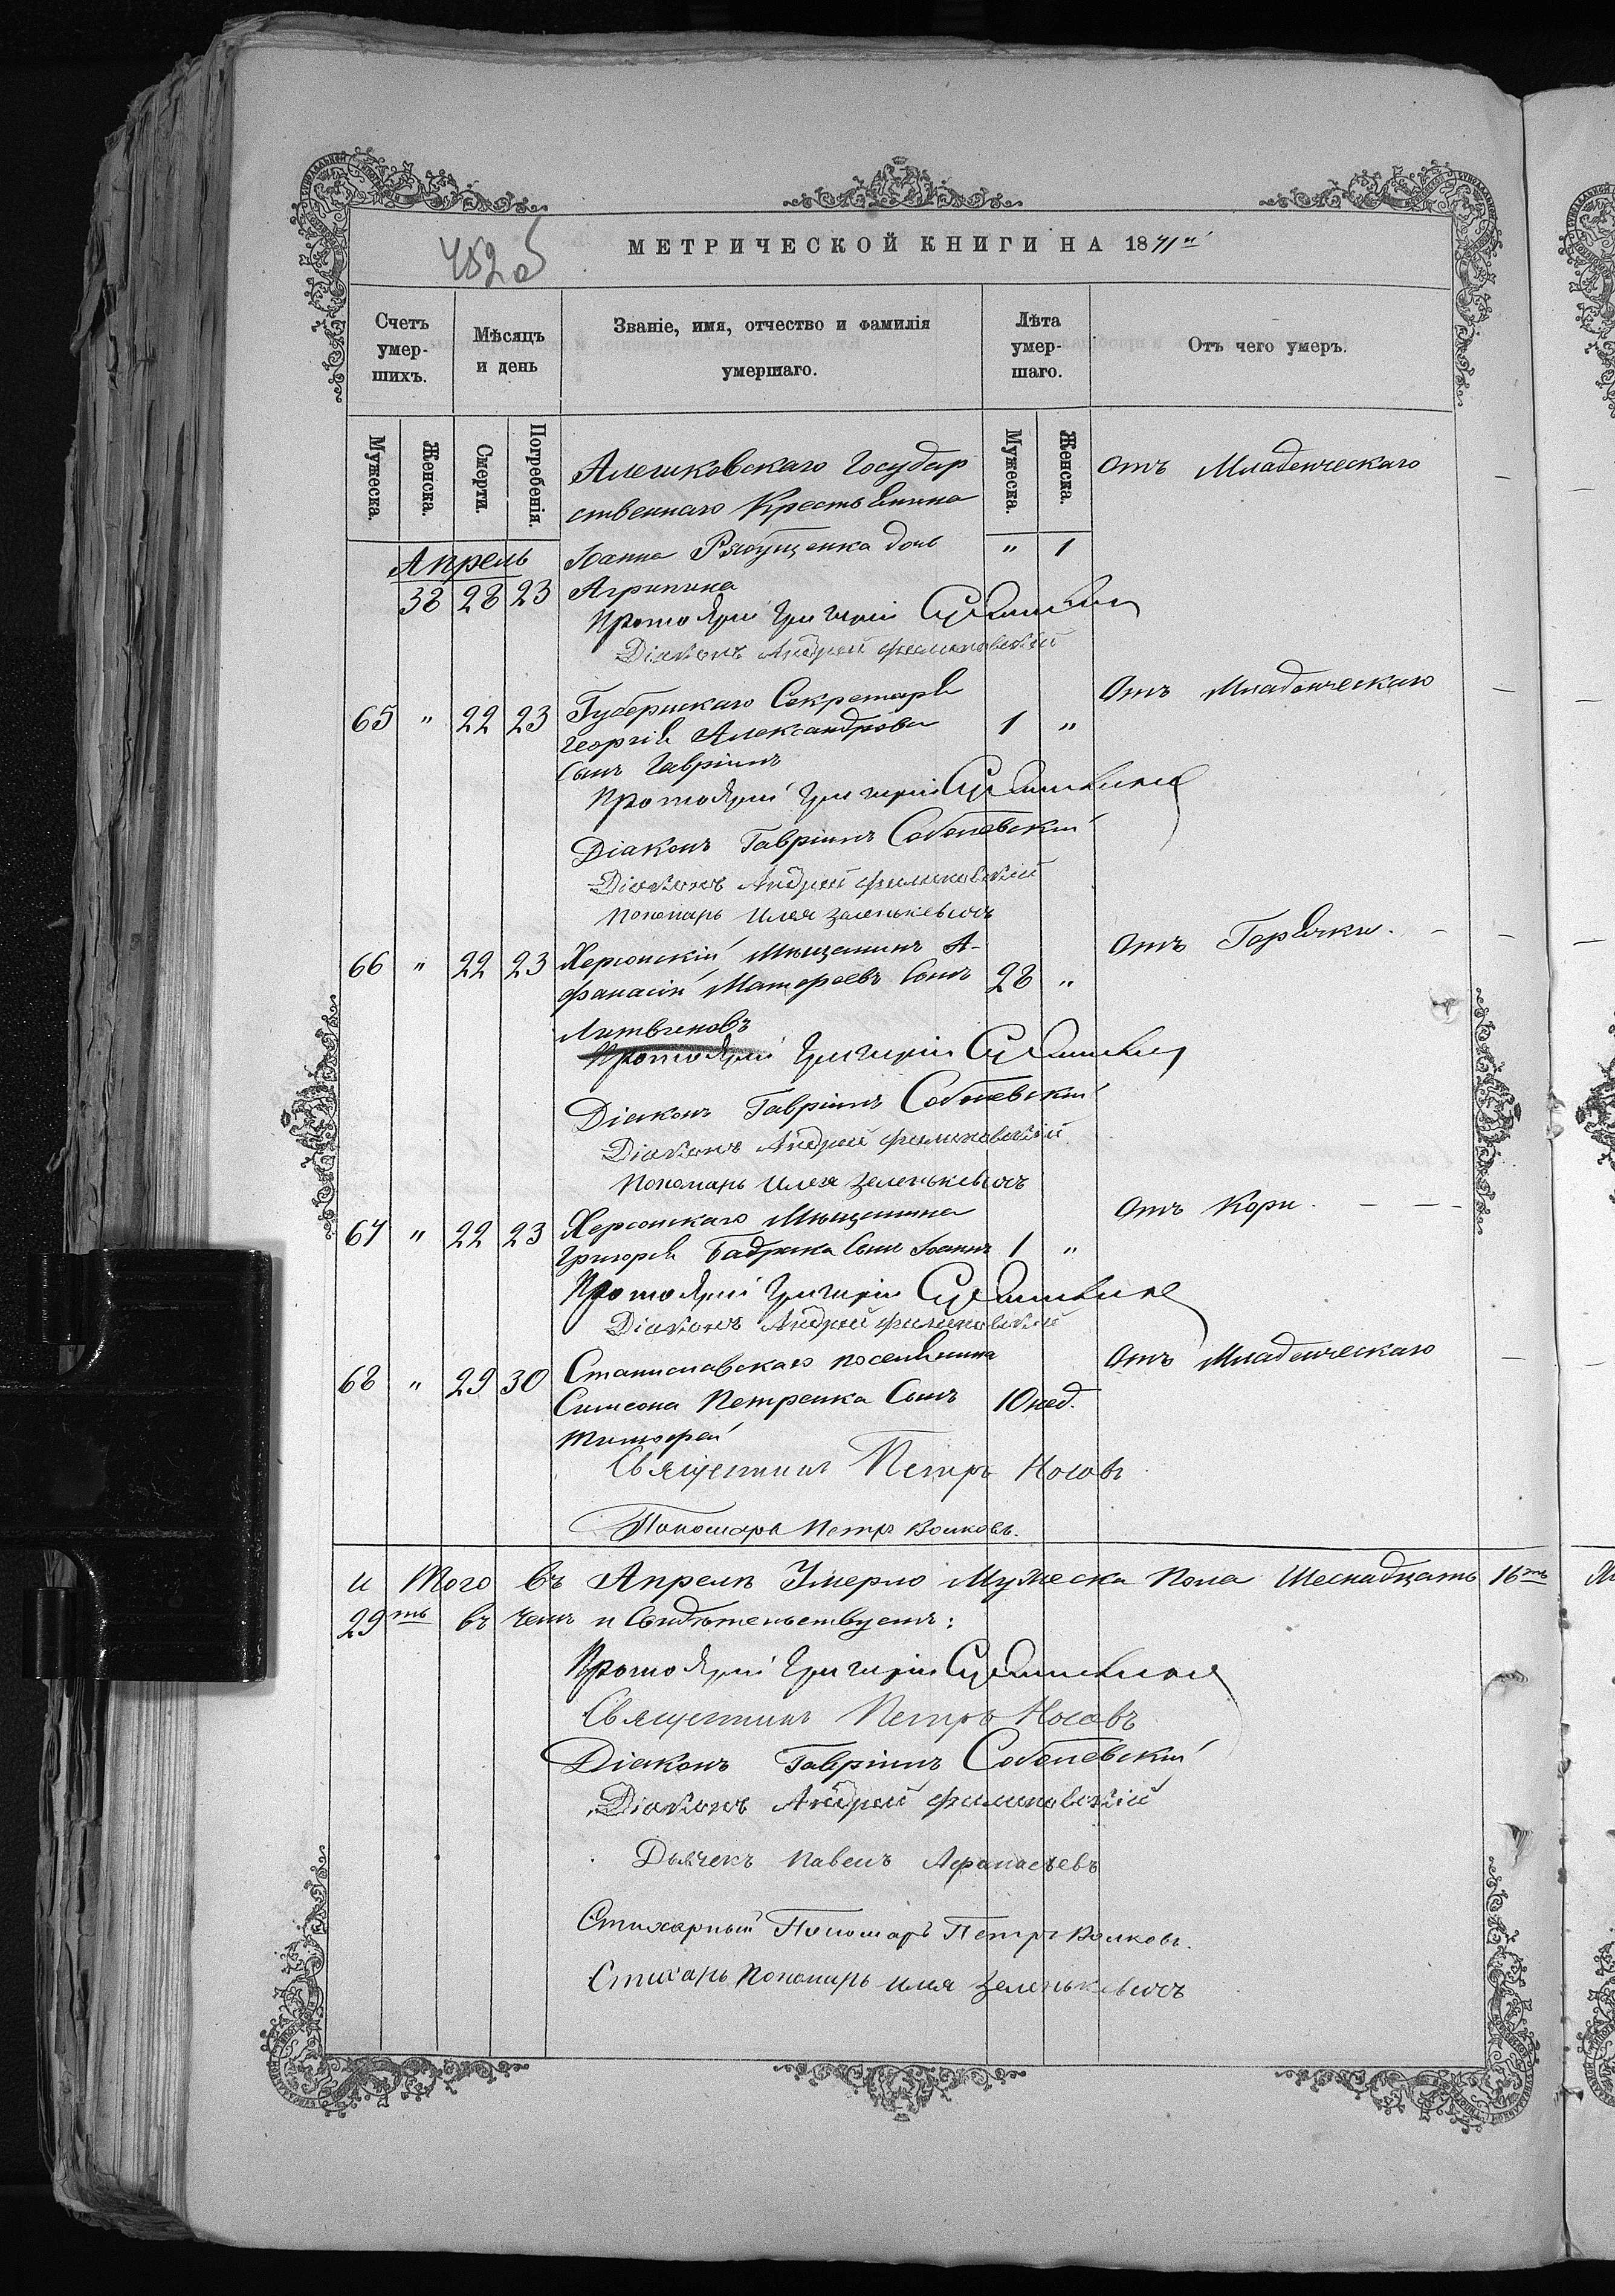 МЕТРИЧЕСКОЙ КНИГИ НА 1871й
Счетъ умер-шихъ.
Мѣсяцъ и день
Званіе, имя, отчество и фамилія умершаго.
Лѣта умер-шаго.
Отъ чего умеръ.
Мужеска. Женска. Смерти. Погребенія. Мужеска. Женска.
Алешковскаго Государ Отъ Младенческаго
ственнаго Крестьянина
Апрель Іоанна Рябущенка дочь " 1
38 28 23 Агрипина
Протоіерей Григорій
Діаконъ Андрей Филиповскій
Губернскаго Секретаря Отъ Младенческаго
65 " 22 23 Георгія Александрова 1 "
Сынъ Гавріилъ
Протоіерей Григорій
Діаконъ Гавріилъ Соболевскій
Діаконъ Андрей Филиповскій
Пономарь Илія Зеленькевичъ
66 " 22 23 Херсонскій Мѣщанинъ А- Отъ Горячки.
фанасій Матфеевъ Сынъ 28 "
Литвиновъ
Протоіерей Григорій
Діаконъ Гавріилъ Соболевскій
Діаконъ Андрей Филиповскій
Пономарь Илія Зеленькевичъ
67 " 22 23 Херсонскаго Мѣщанина Отъ Кори.
Григорія Бадрака Сынъ Іоаннъ 1 "
Протоіерей Григорій
Діаконъ Андрей Филиповскій
68 " 29 30 Станиславскаго поселянина Отъ Младенческаго
Симеона Петренка Сынъ 10 нед.
Тимофей
Священникъ Петръ Носовъ
Пономарь Петръ Волковъ.
И Того въ Апрелѣ Умерло Мужеска Пола Шеснадцать 16ть
29ть въ чемъ и Свидѣтельствуемъ:
Протоіерей Григорій
Священникъ Петръ Носовъ
Діаконъ Гавріилъ Соболевскій
Діаконъ Андрей Филиповскій
Дьячекъ Павелъ Афанасьевъ
Стихарный Пономарь Петръ Волковъ.
Стихарь Пономарь Илія Зеленькевичъ